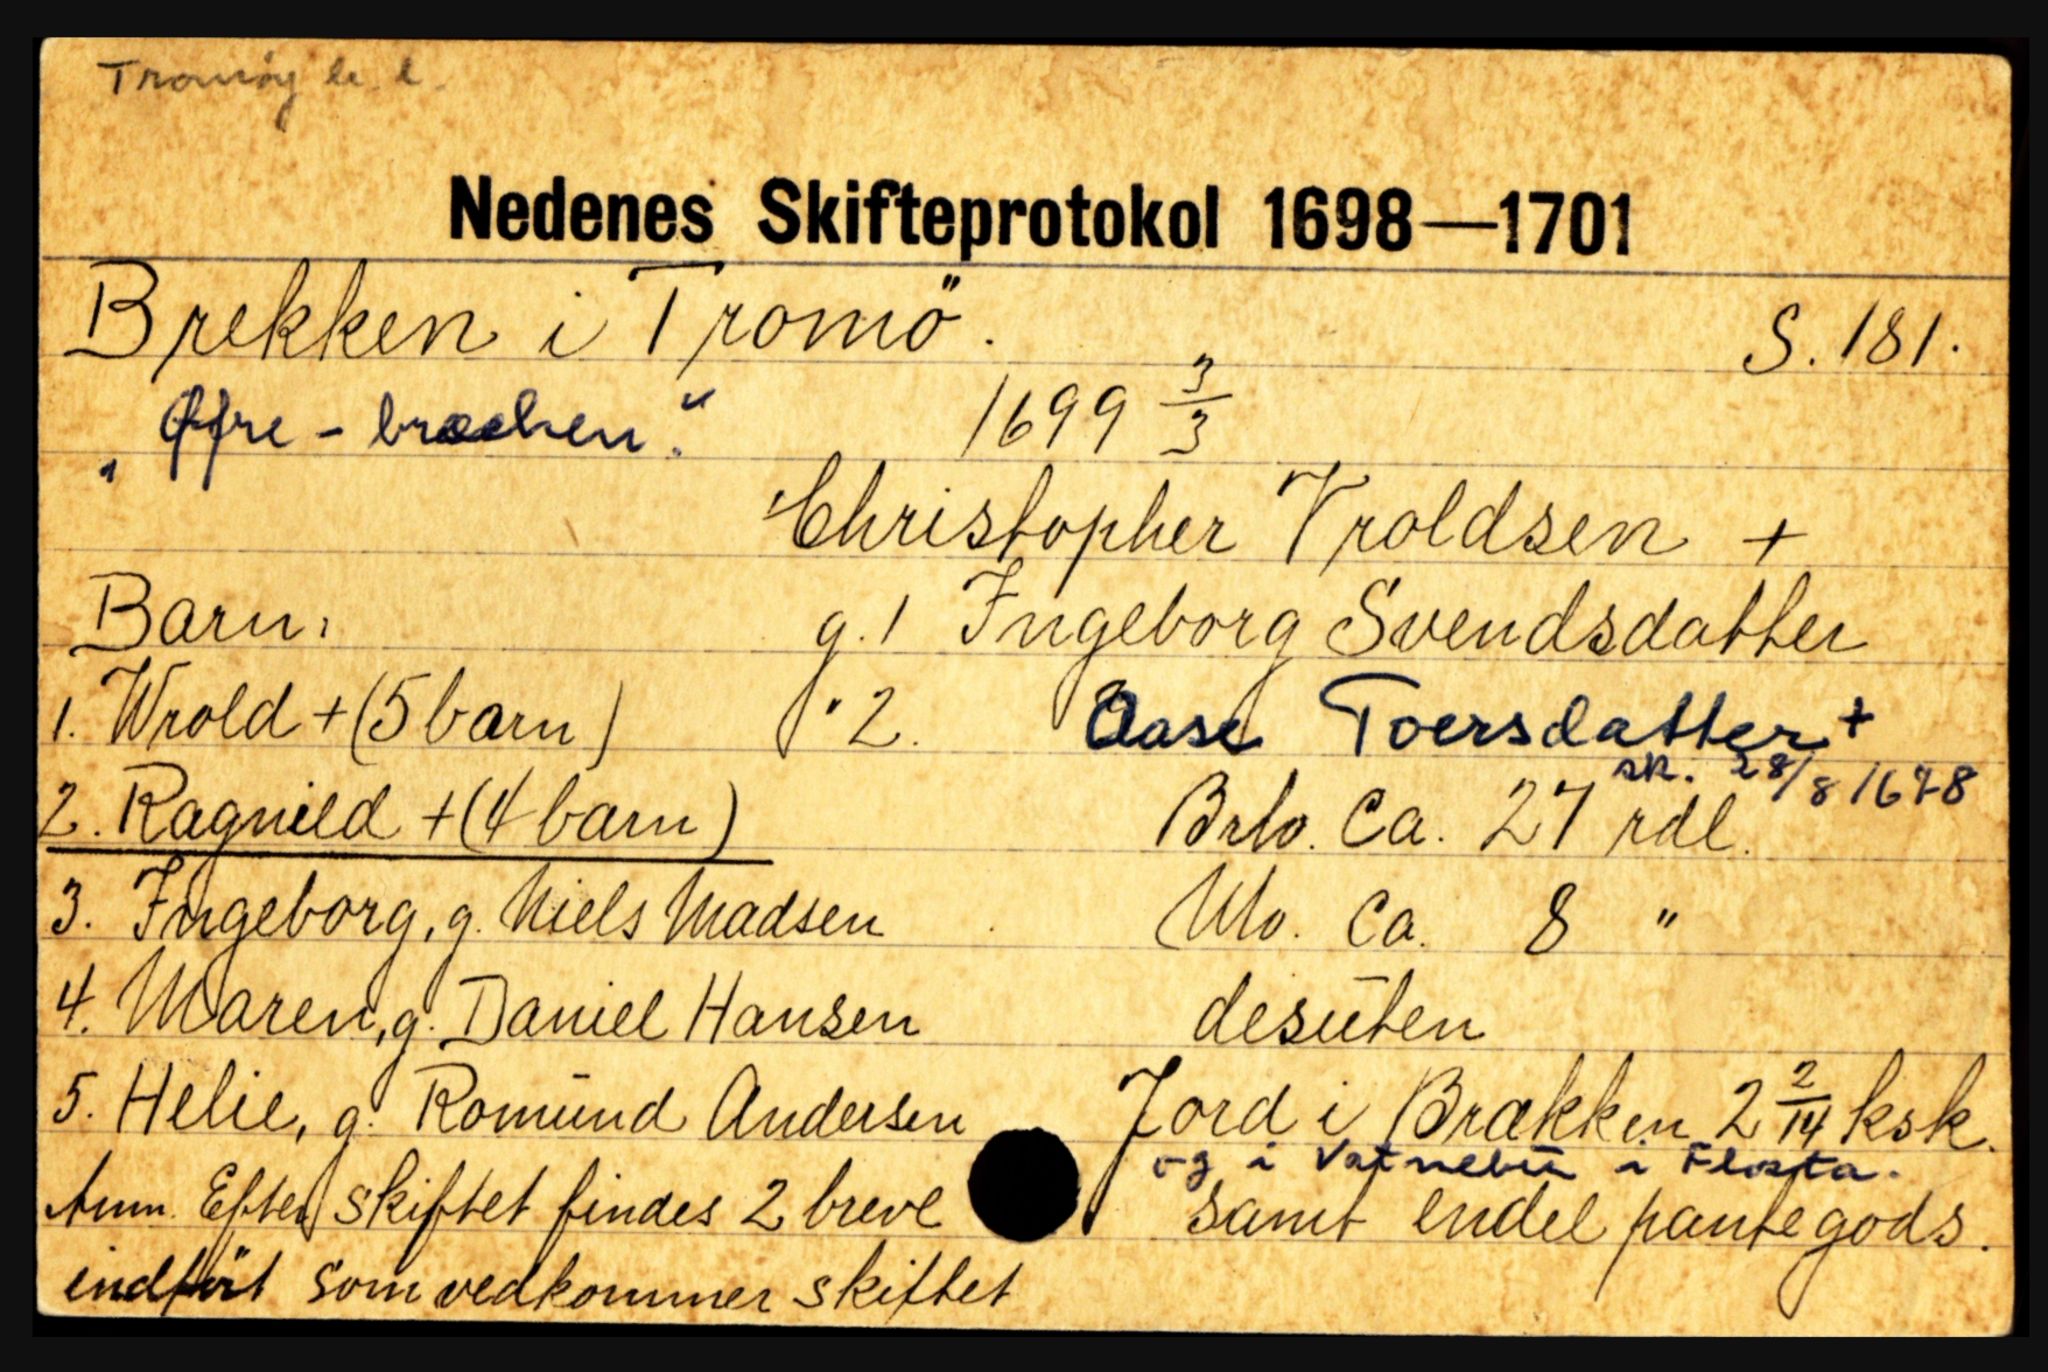 Tromøy
Nedenes Skifteprotokol 1698—1701
Brekken i Tromö.
S. 181.
"Øfre - bræchen."
1699 3/3
Christopher Vroldsen +
Barn:
g. 1 Ingeborg Svendsdatter
1. Wrold + (5 barn)
" 2. Aase Toersdatter +
sk. 28/8 1678
2. Ragnild + (4 barn)
Brto. Ca. 27 rdl.
3. Ingeborg, g. Niels Madsen
Nto. Ca. 8 "
4. Maren, g. Daniel Hansen
desūten
5. Helie, g. Romūnd Andersen
Jord i Brækken 2 2/14 ksk.
og i Vatnebū i Flosta.
Anm. Efter skiftet findes 2 breve
samt endel pantegods.
indført som vedkommer skiftet